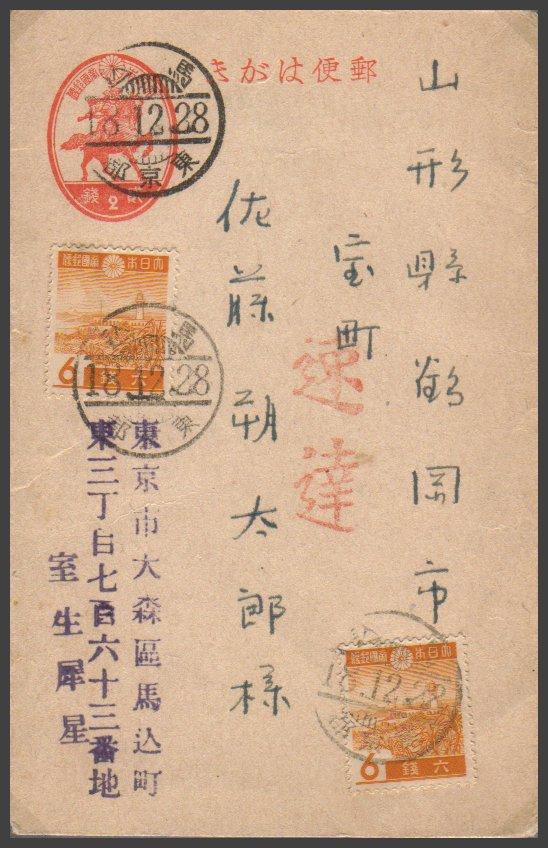 郵便はがき
山形縣鶴岡市
宝町
佐藤朔太郎様
速達
東京市大森區馬込町
東三丁目七百六十三番地
室生犀星
18.12.28
東京
2
錢
大日本帝國郵便
6
六
18.12.28
東
大日本帝國郵便
6
錢六
18.12.28